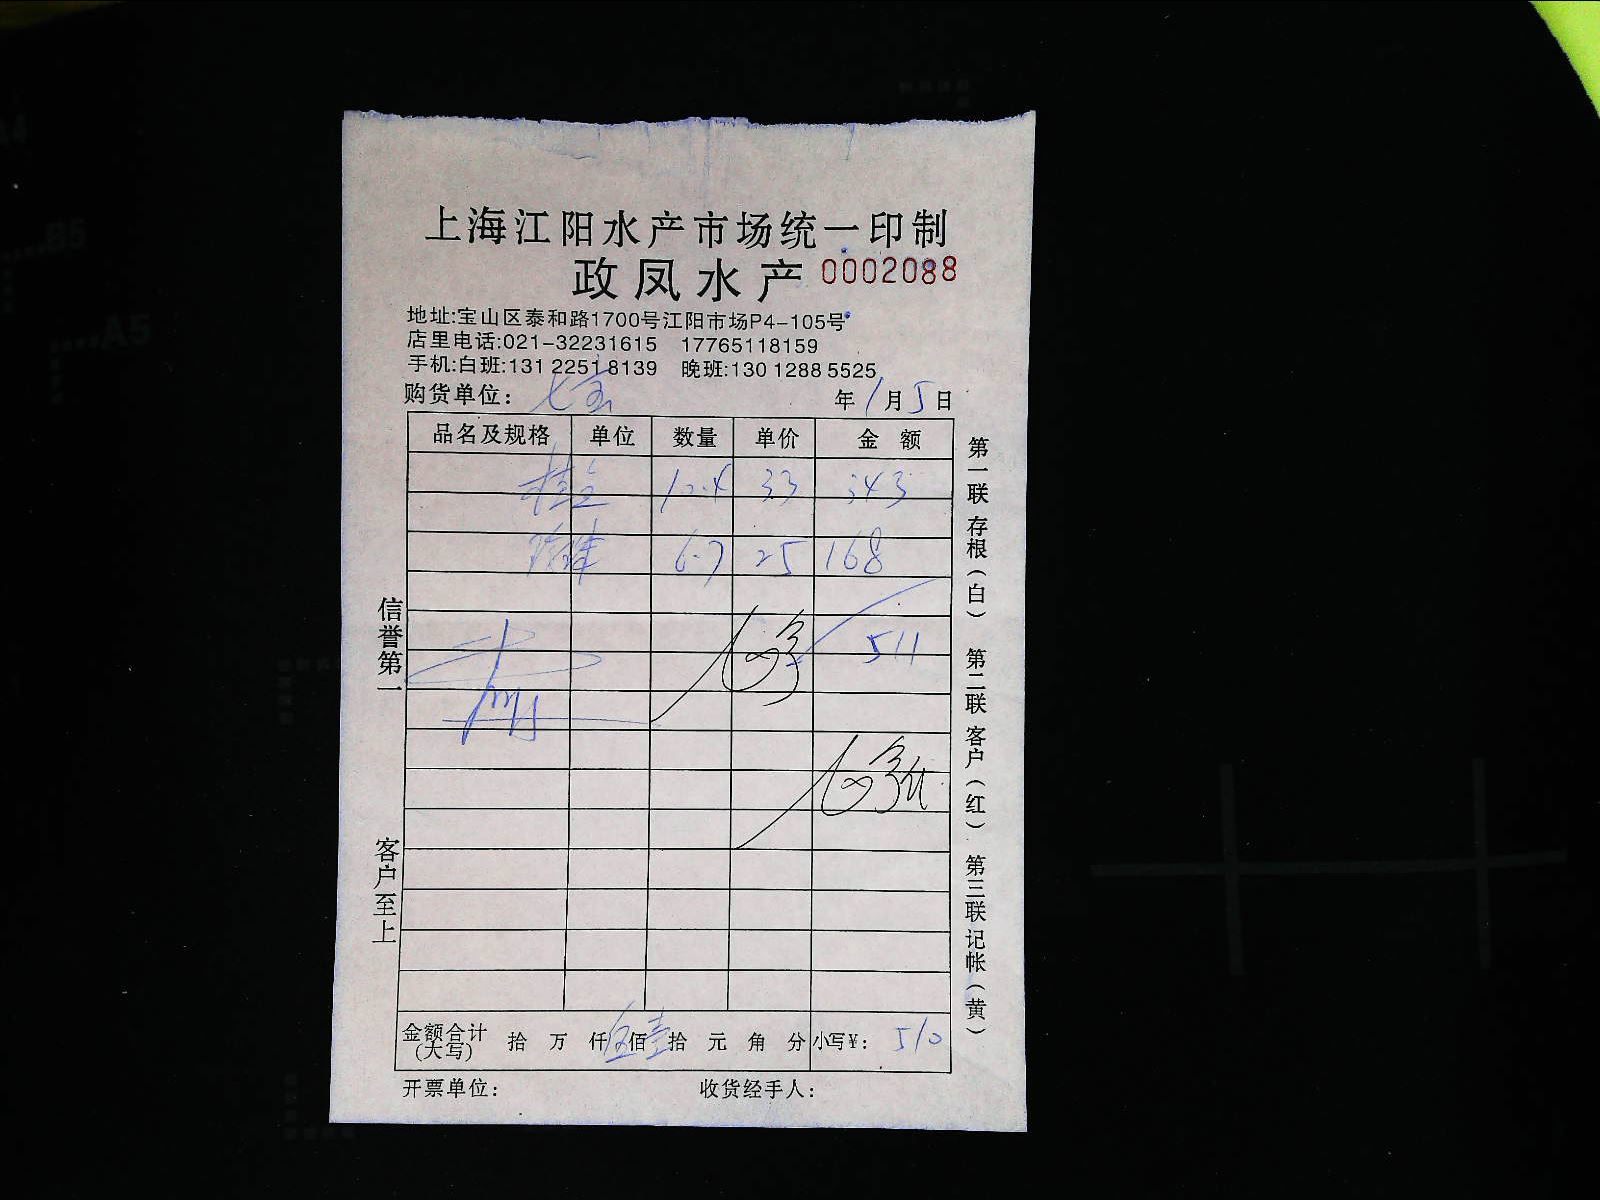 上海江阳水产市场统一印制
政凤水产 0002088
地址:宝山区泰和路1700号江阳市场P4-105号
店里电话:021-32231615 17765118159
手机:白班:131 2251 8139 晚班:130 1288 5525
购货单位: 七宝 年 1 月 5 日
品名及规格 单位 数量 单价 金 额
桂鱼 10.4 33 343
6.7 25 168
511
信誉第一
客户至上
第一联 存根(白) 第二联 客户(红) 第三联 记帐(黄)
金额合计(大写) 拾 万 仟 伍 佰 壹 拾 元 角 分 小写¥: 510
开票单位: 收货经手人: